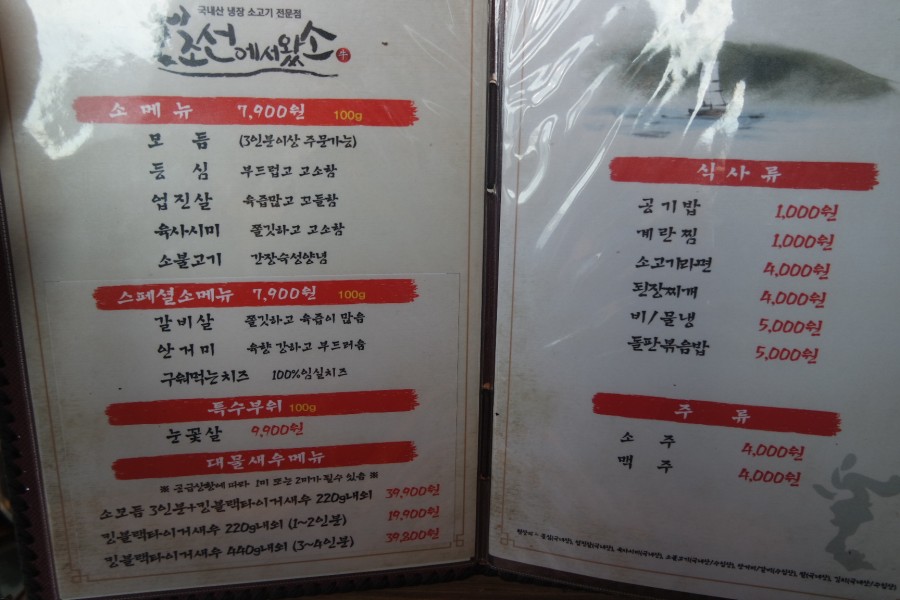 국내산 냉장 소고기 전문점
조선에서왔소
소 메 뉴 7,900원 100g
모 듬 (3인분이상 주문가능)
등 심 부드럽고 고소함
업진살 육즙많고 꼬들함
육사시미 쫄깃하고 고소함
소불고기 간장숙성양념
스페셜소메뉴 7,900원 100g
갈비살 쫄깃하고 육즙이 많음
안거미 육향 강하고 부드러움
구워먹는치즈 100%임실치즈
특수부위 100g
눈꽃살 9,900원
대물새우메뉴
※ 공급상황에 따라 1미 또는 2미가 될수 있음 ※
소모듬 3인분+킹블랙타이거새우 220g내외 39,900원
킹블랙타이거새우 220g내외 (1~2인분) 19,900원
킹블랙타이거새우 440g내외 (3~4인분) 39,200원
식 사 류
공기밥 1,000원
계란찜 1,000원
소고기라면 4,000원
된장찌개 4,000원
비/물냉 5,000원
돌판볶음밥 5,000원
주 류
소 주 4,000원
맥 주 4,000원